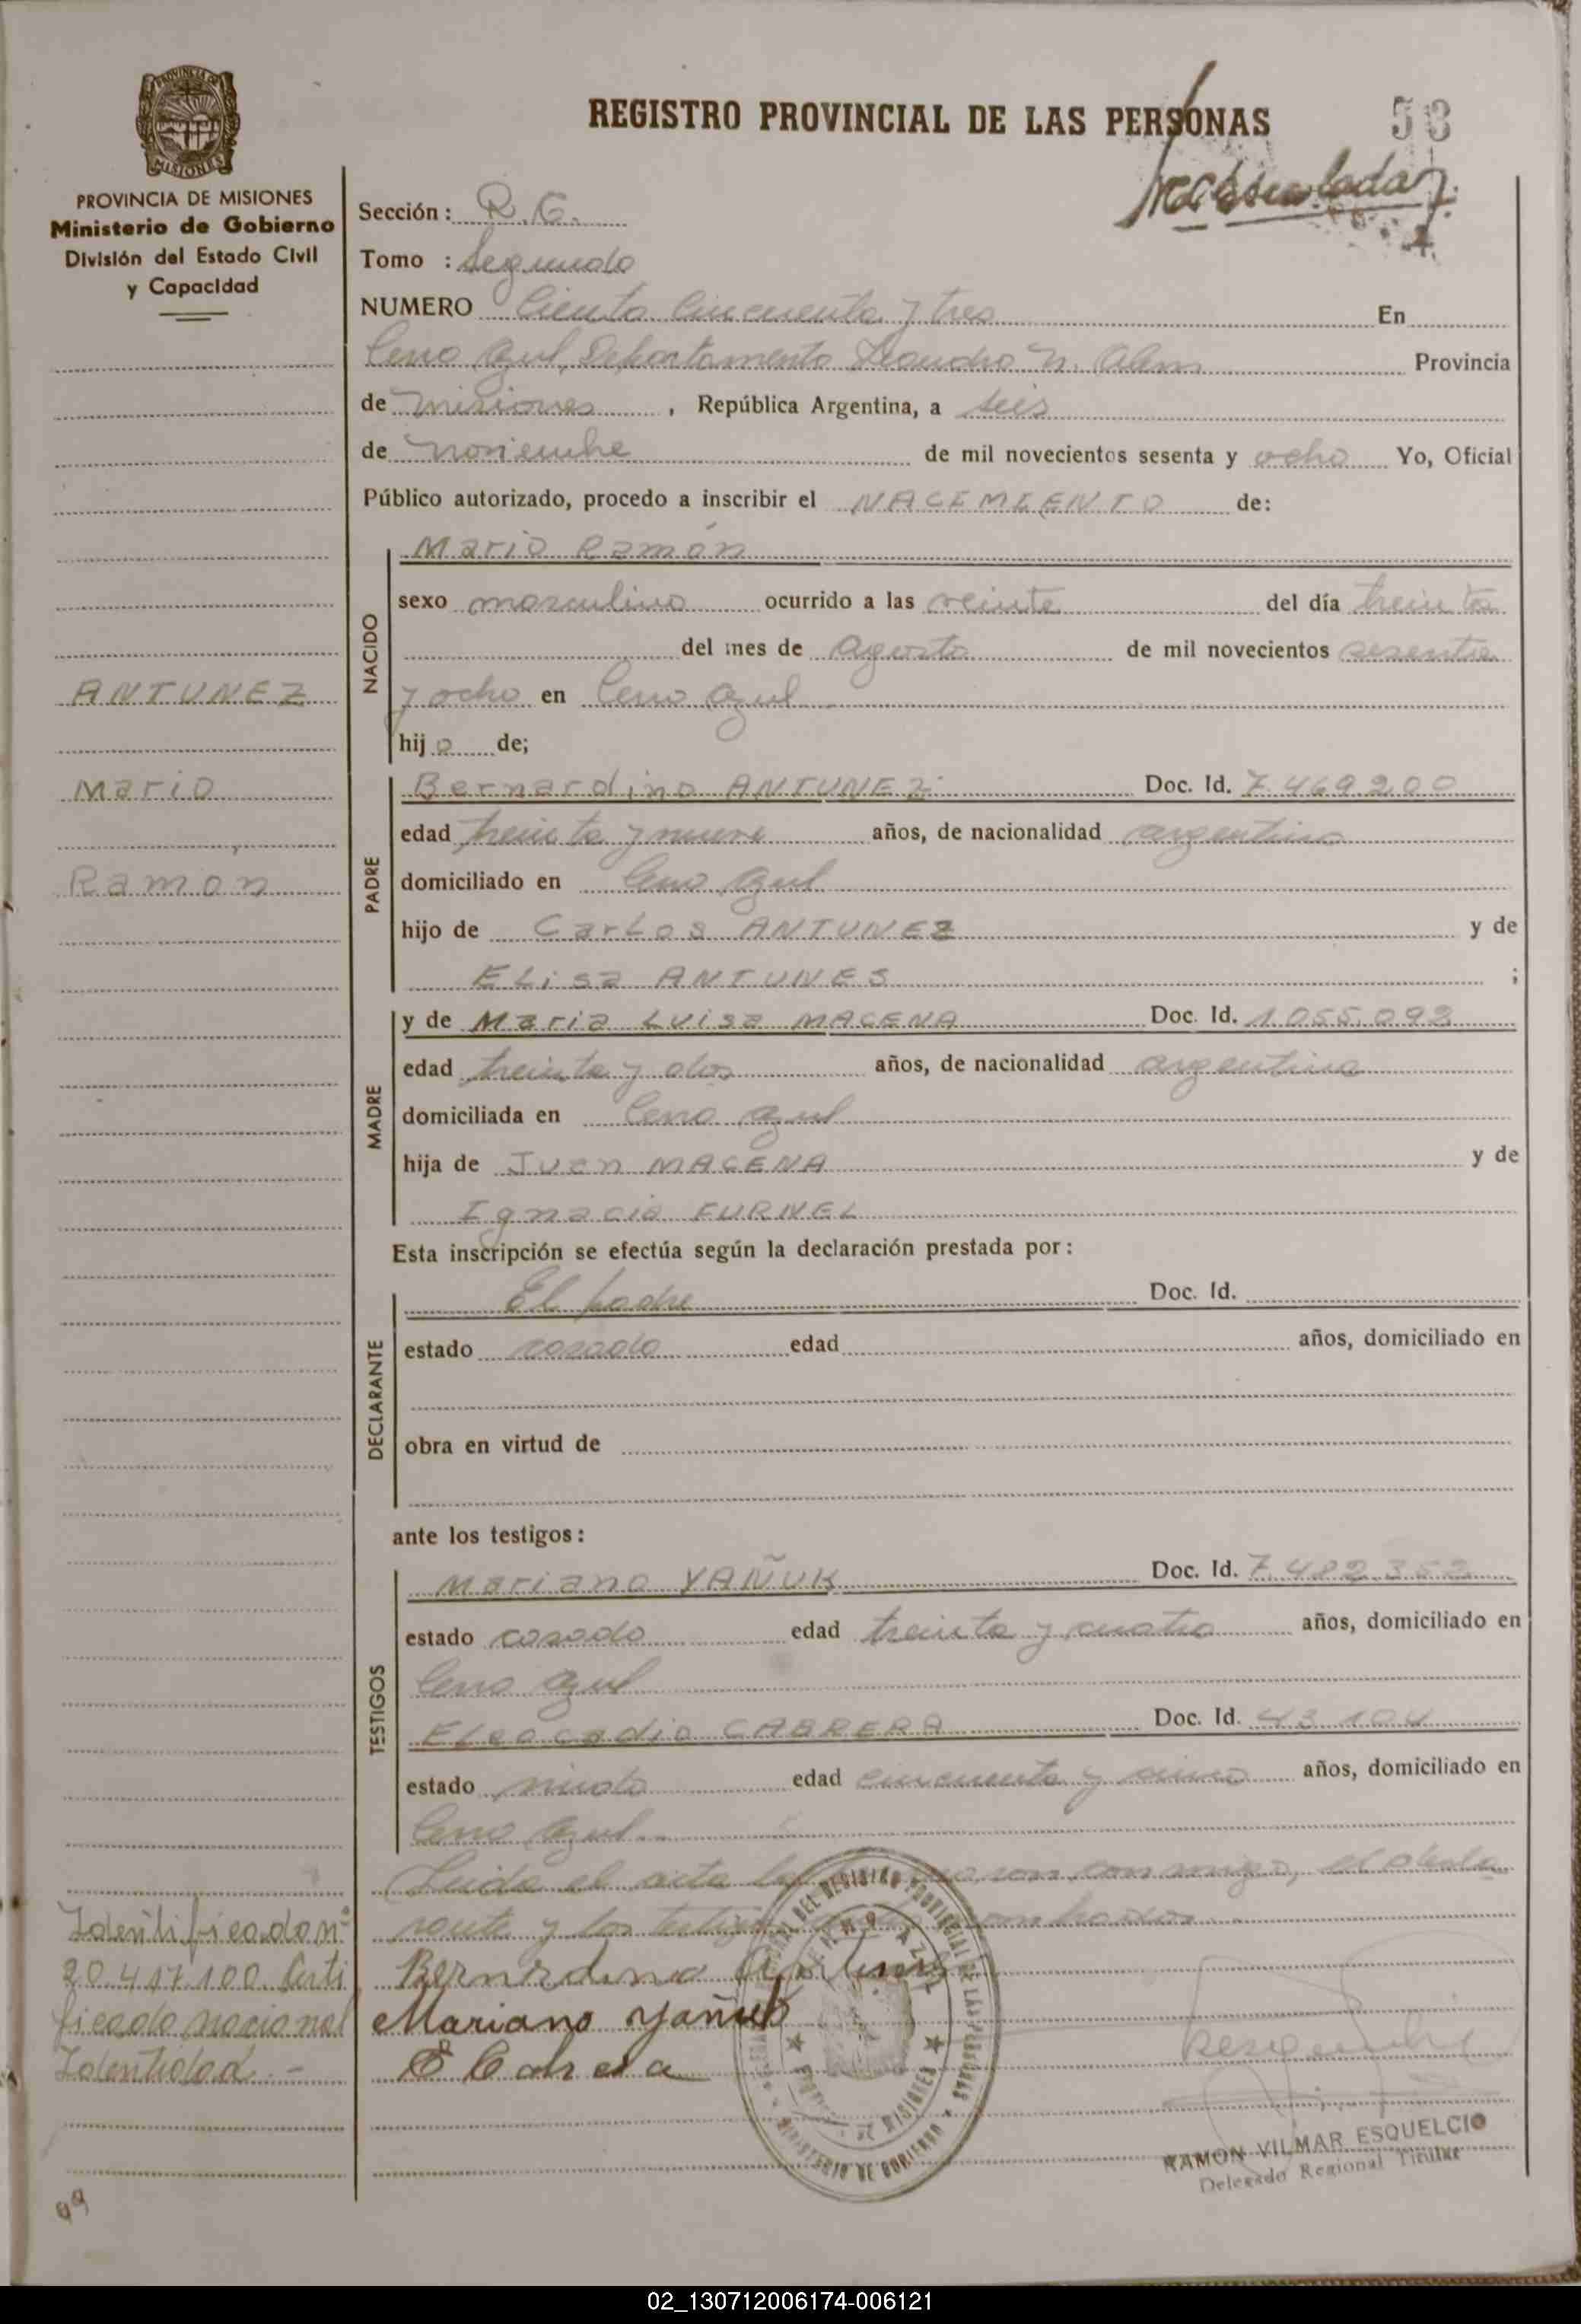 REGISTRO PROVINCIAL DE LAS PERSONAS
PROVINCIA DE MISIONES
Ministerio de Gobierno
División del Estado Civil
y Capacidad
Sección: R.G.
Tomo : Segundo
NUMERO Ciento Cincuenta y tres En
Cerro Azul, Departamento Leandro N. Alem Provincia
de misiones, República Argentina, a seis
de noviembre de mil novecientos sesenta y ocho Yo, Oficial
Público autorizado, procedo a inscribir el NACIMIENTO de:
NACIDO
Mario Ramón
sexo masculino ocurrido a las veinte del día treinta
del mes de agosto de mil novecientos sesenta
y ocho en Cerro Azul
hijo de;
ANTUNEZ
Mario
Ramon
PADRE
Bernardino ANTUNEZ Doc. Id. 7.469.200
edad treinta y nueve años, de nacionalidad argentino
domiciliado en Cerro Azul
hijo de Carlos ANTUNEZ y de
Elisa ANTUNES ;
MADRE
y de Maria Luisa MACENA Doc. Id. 1.055.093
edad treinta y dos años, de nacionalidad argentina
domiciliada en Cerro Azul
hija de Juan MACENA y de
Ignacia FURNEL
Esta inscripción se efectúa según la declaración prestada por:
DECLARANTE
El padre Doc. Id.
estado casado edad años, domiciliado en
obra en virtud de
ante los testigos:
TESTIGOS
Mariano YAÑUK Doc. Id. 7.482.352
estado casado edad treinta y cuatro años, domiciliado en
Cerro Azul
Eleocadio CABRERA Doc. Id. 43.104
estado viudo edad cincuenta y años, domiciliado en
Cerro Azul
Leida el acta la conmigo, el decla
rante y los testigos
Identificado nº
20.417.100 Certi
ficado nacional
Identidad.-
Bernardino Antunez
Mariano Yañuk
E Cabrera
RAMON VILMAR ESQUELCIO
Delegado Regional Titular
99
02_130712006174-006121